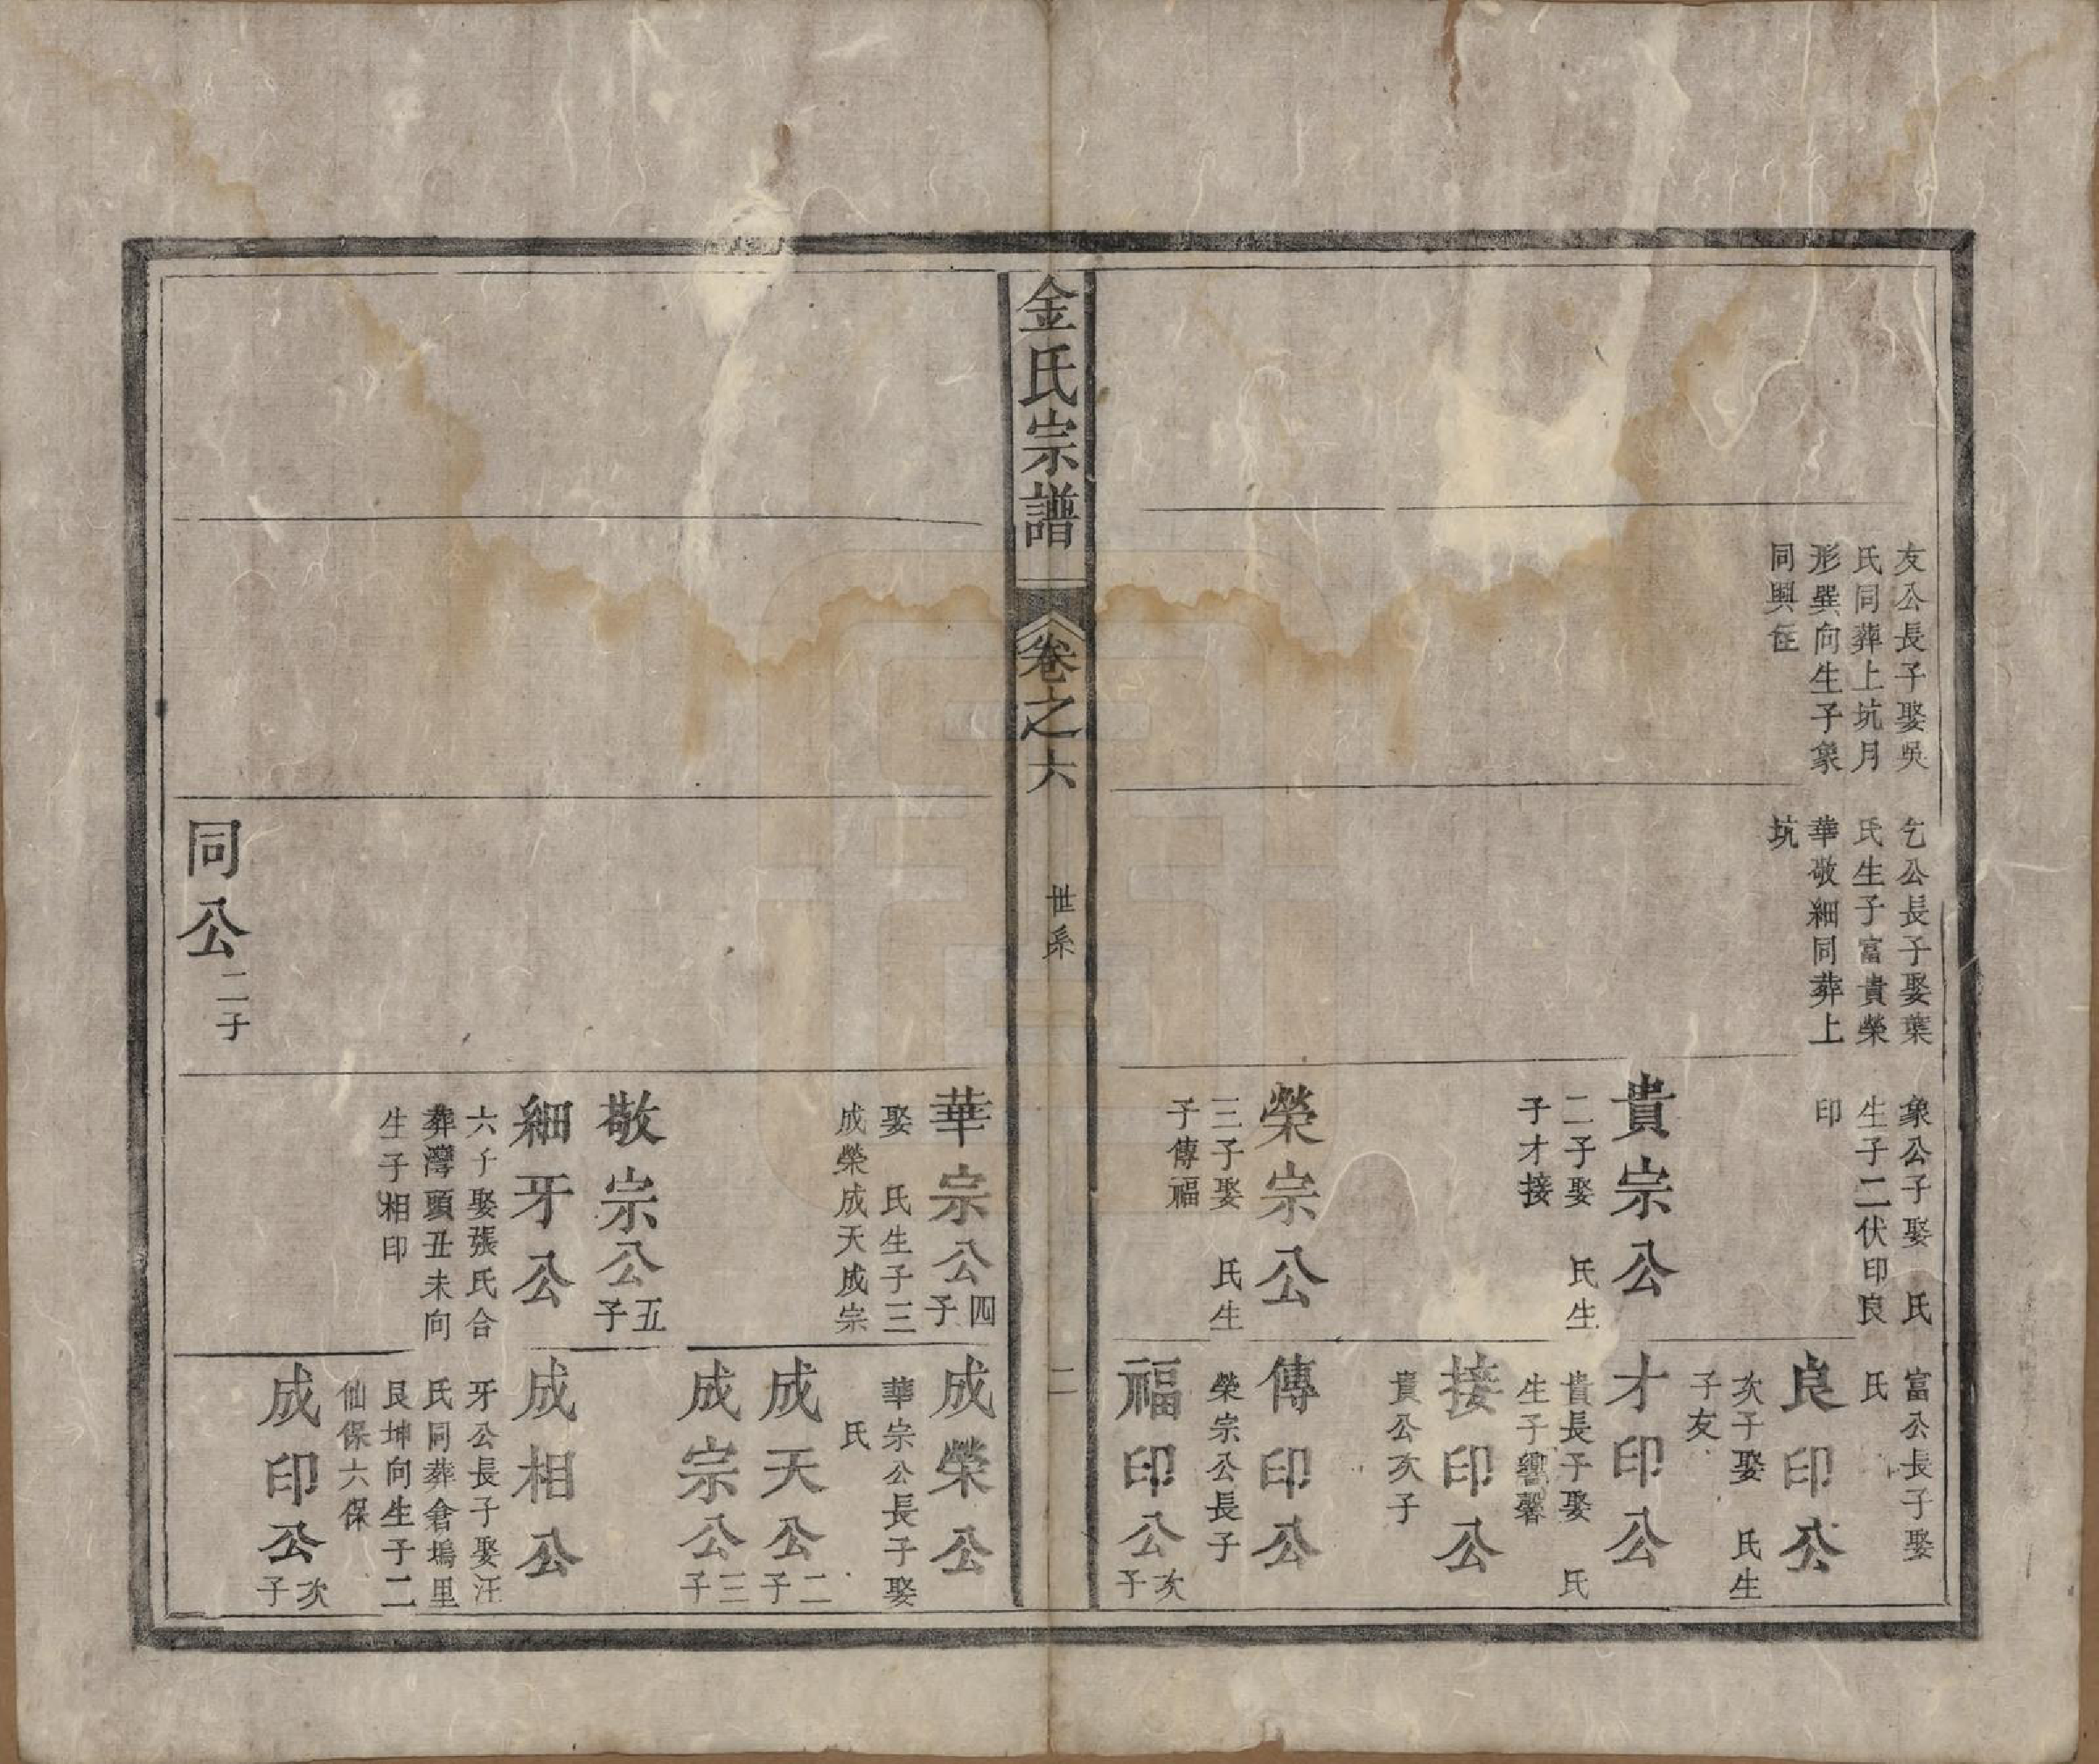 友公長子娶吳
氏同葬上坑月
形巽向生子象
同興
乞公長子娶葉
氏生子富貴榮
華敬細同葬上
坑
象公子娶　氏
生子二伏印良
印
貴宗公
二子娶　氏生
子才接
榮宗公
三子娶　氏生
子傳福
富公長子娶
氏
良印公
次子娶　氏生
子友
才印公
貴長子娶　氏
生子　馨
接印公
貴公次子
傳印公
榮宗公長子
福印公次子
金氏宗譜
卷之六
世系
二
華宗公四子
娶　氏生子三
成榮成天成宗
敬宗公五子
細牙公
六子娶張氏合
葬灣頭丑未向
生子相印
成榮公
華宗公長子娶
氏
成天公二子
成宗公三子
成相公
牙公長子娶汪
氏同葬倉塢里
艮坤向生子二
仙保六保
成印公次子
同公二子